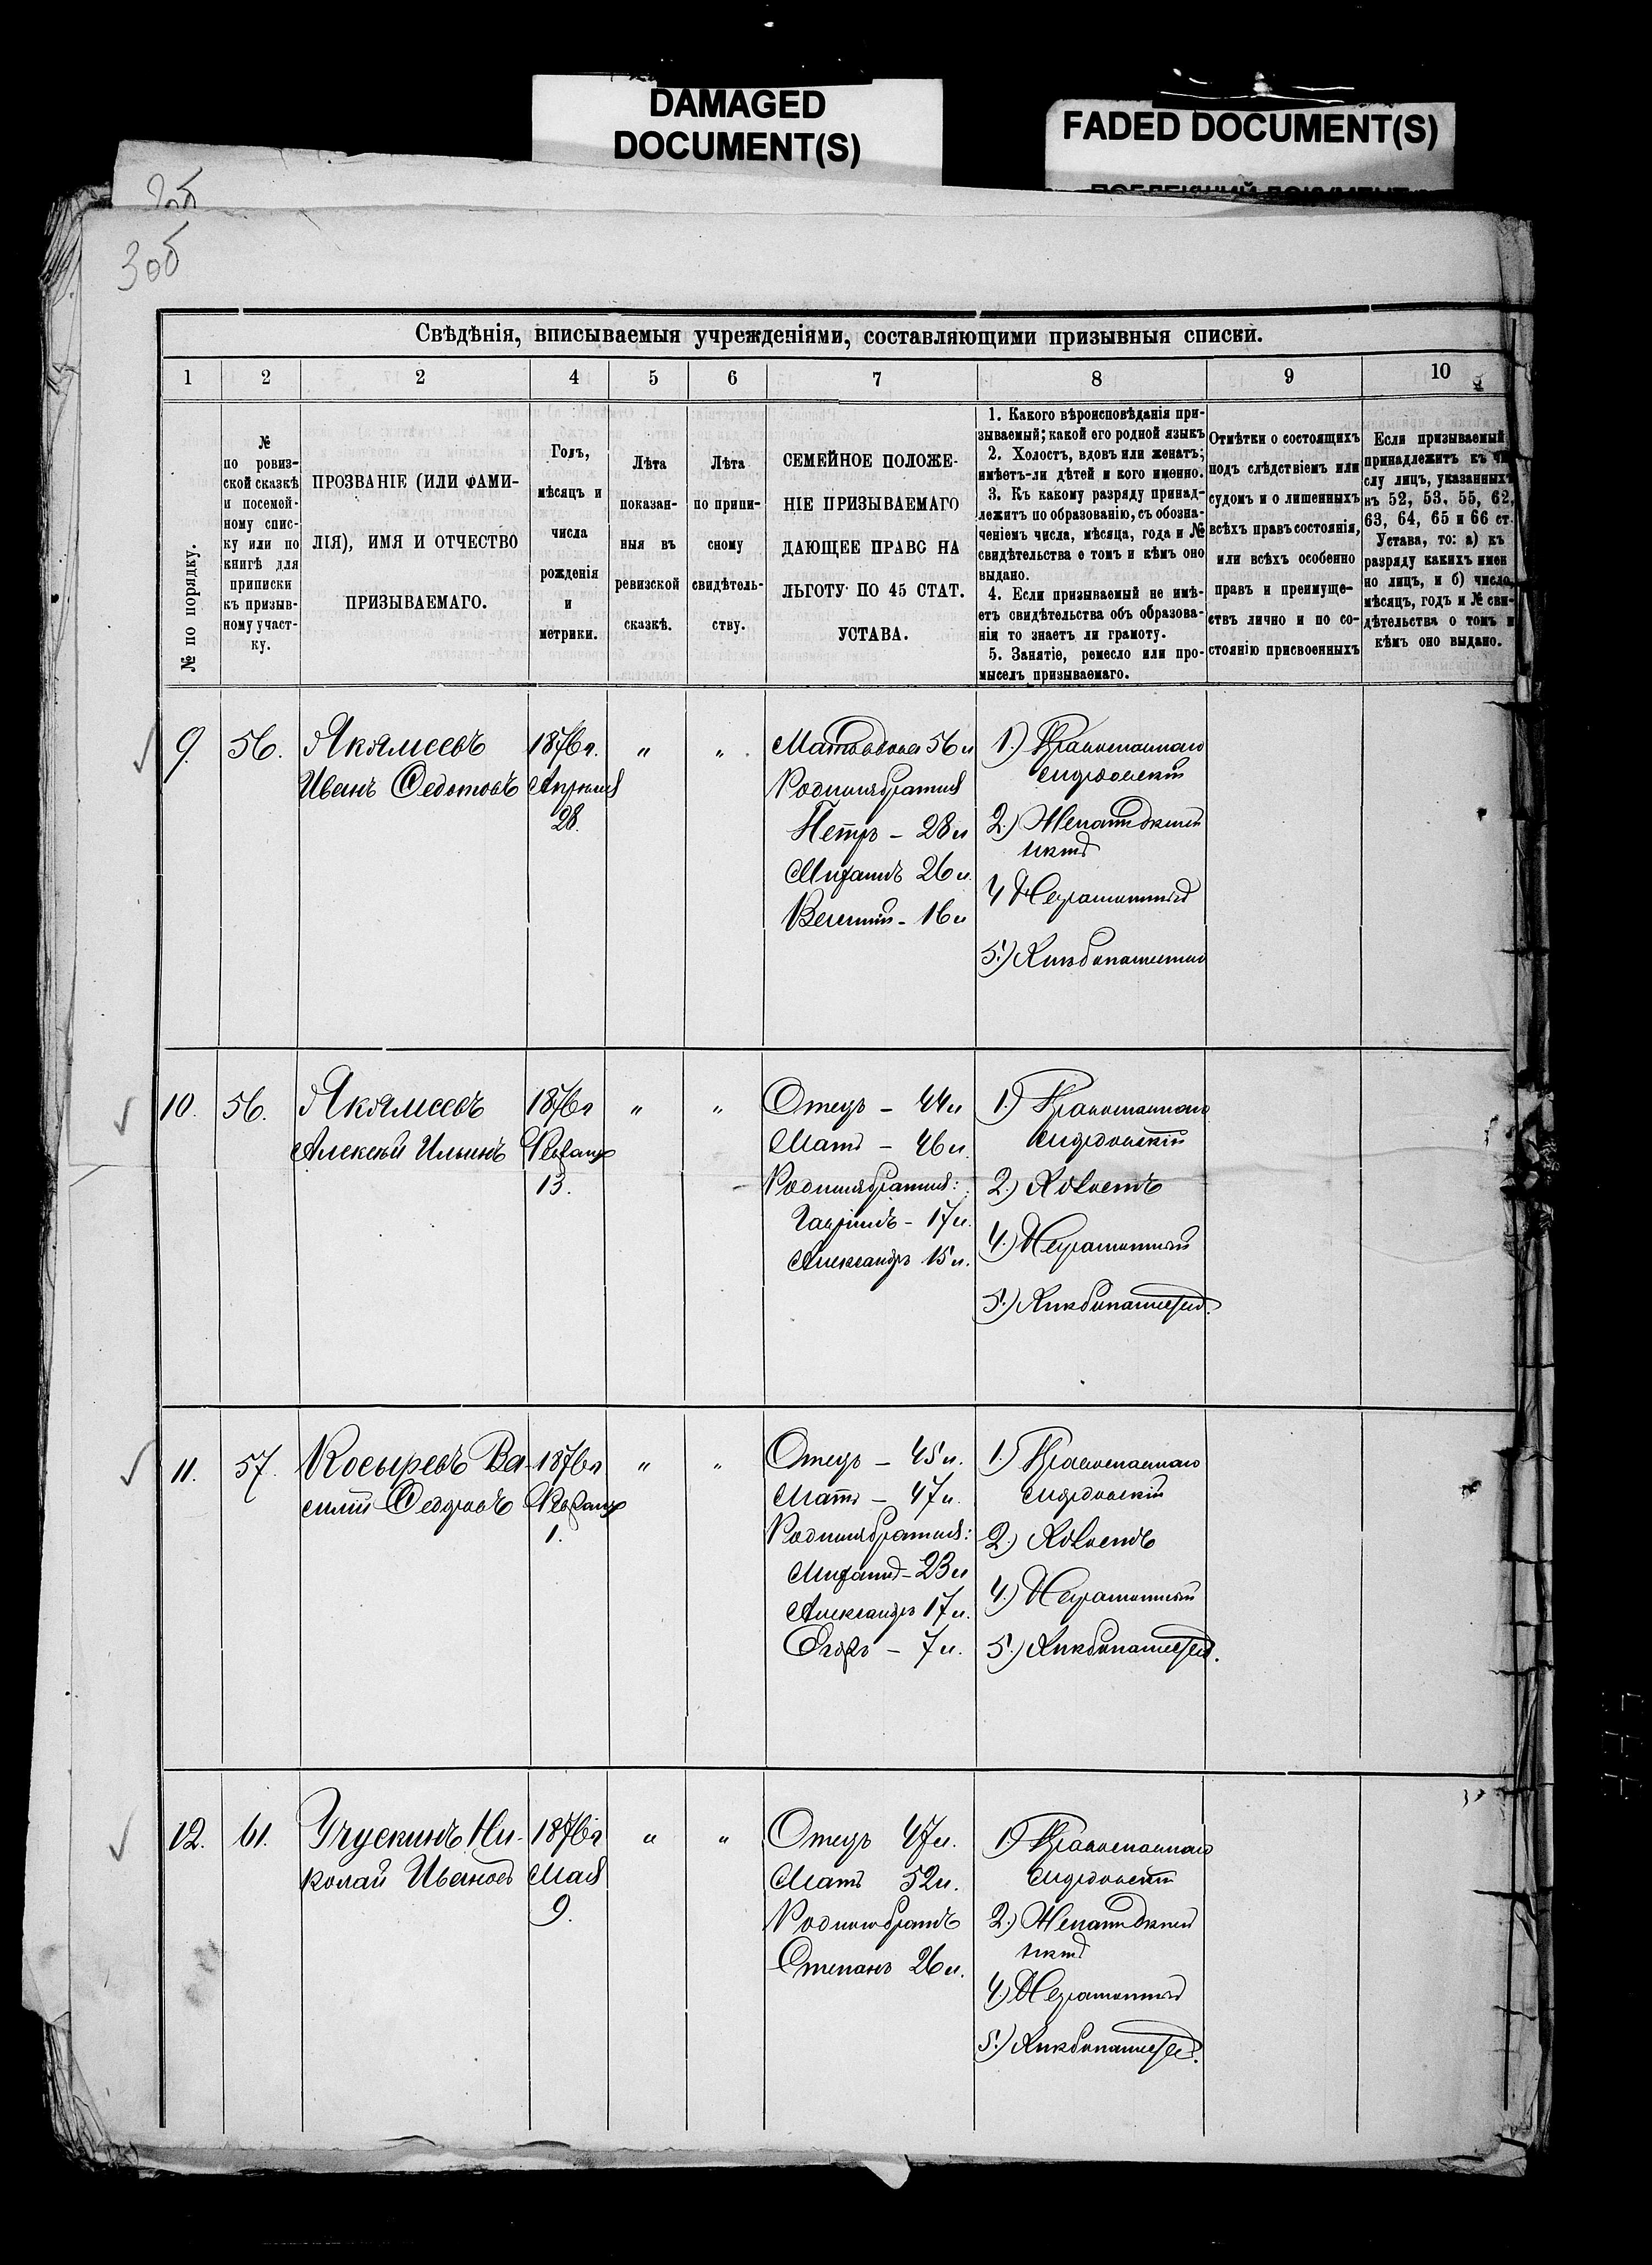 DAMAGED
DOCUMENT(S)
FADED DOCUMENT(S)
2об
3об
Свѣдѣнія, вписываемыя учрежденіями, составляющими призывныя списки.
1 2 2 4 5 6 7 8 9 10
№ по порядку.
№
по ровиз-
ской сказкѣ
и посемей-
ному спис-
ку или по
книгѣ для
приписки
къ призыв-
ному участ-
ку.
ПРОЗВАНІЕ (ИЛИ ФАМИ-
ЛІЯ), ИМЯ И ОТЧЕСТВО
ПРИЗЫВАЕМАГО.
Годъ,
мѣсяцъ и
числа
рожденія
и
метрики.
Лѣта
показан-
ныя въ
ревизской
сказкѣ.
Лѣта
по припи-
сному
свидѣтель-
ству.
СЕМЕЙНОЕ ПОЛОЖЕ-
НІЕ ПРИЗЫВАЕМАГО
ДАЮЩЕЕ ПРАВО НА
ЛЬГОТУ ПО 45 СТАТ.
УСТАВА.
1. Какого вѣроисповѣданія при-
зываемый; какой его родной языкъ
2. Холостъ, вдовъ или женатъ;
имѣетъ-ли дѣтей и кого именно.
3. Къ какому разряду принад-
лежитъ по образованію, съ обозна-
ченіемъ числа, мѣсяца, года и №
свидѣтельства о томъ и кѣмъ оно
выдано.
4. Если призываемый не имѣ-
етъ свидѣтельства объ образова-
ніи то знаетъ ли грамоту.
5. Занятіе, ремесло или про-
мыселъ призываемаго.
Отмѣтки о состоящихъ
подъ слѣдствіемъ или
судомъ и о лишенныхъ
всѣхъ правъ состоянія,
или всѣхъ особенно
правъ и преимуще-
ствъ лично и по со-
стоянію присвоенныхъ
Если призываемый
принадлежитъ къ чи
слу лицъ, указанныхъ
въ 52, 53, 55, 62,
63, 64, 65 и 66 ст.
Устава, то: а) къ
разряду какихъ имен
но лицъ, и б) число,
мѣсяцъ, годъ и № сви-
дѣтельства о томъ и
кѣмъ оно выдано.
9. 56.
Акямсевъ
Иванъ Федотовъ
1876 г.
Апрѣля
28.
" "
Мать вдова 56 л
Родныя братья
Петръ - 28 л
Михаилъ 26 л.
16 л
1.) Православнаго
мордовскій
2.) Женатъ дѣтей
нѣтъ
4 Неграмотный
5.) Хлѣбопашество
10. 56.
Акямсевъ
Алексѣй Ильинъ
1876 г
Февраля
13.
" "
Отецъ - 44 л
Мать - 46 л.
Родныя братья:
Гаврілъ - 17 л.
Александръ 15 л.
1.) Православнаго
мордовскій
2.) Холостъ
4.) Неграмотный
5.) Хлѣбопашество.
11. 57.
Косыревъ Ва-
силій Федоровъ
1876 г
Января
1.
" "
Отецъ - 45 л.
Мать - 47 л.
Родныя братья:
Михаилъ - 23 л
Александръ 17 л.
Егоръ - 7 л.
1.) Православнаго
мордовскій
2.) Холостъ
4.) Неграмотный
5.) Хлѣбопашество.
12. 61.
Ни-
колай Ивановъ
1876 г
Мая
9.
" "
Отецъ 47 л.
Мать 52 л.
Родной братъ
Степанъ 26 л.
1.) Православнаго
мордовскій
2.) Женатъ дѣтей
нѣтъ
4.) Неграмотный
5.) Хлѣбопашество.